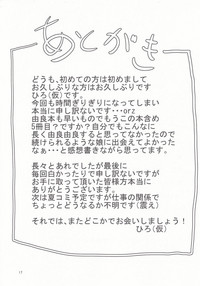 あとがき
どうも、初めての方は初めまして
お久しぶりな方はお久しぶりです
ひろ(仮)です。
今回も時間ぎりぎりになってしまい
本当に申し訳ないです・・・orz
由良本も早いものでもうこの本含め
5冊目？ですか？自分でもこんなに
長く由良由良すると思ってなかったので
続けられるような娘に出会えてよかった
なぁ・・・と感想書きながら思ってます。
長々とあれでしたが最後に
毎回白かったりで申し訳ないですが
お手に取って頂いた皆様方本当に
ありがとうございます。
次は夏コミ予定ですが仕事の関係で
ちょっとどうなるか不明です(震え)
それでは、またどこかでお会いしましょう！
ひろ(仮)
17